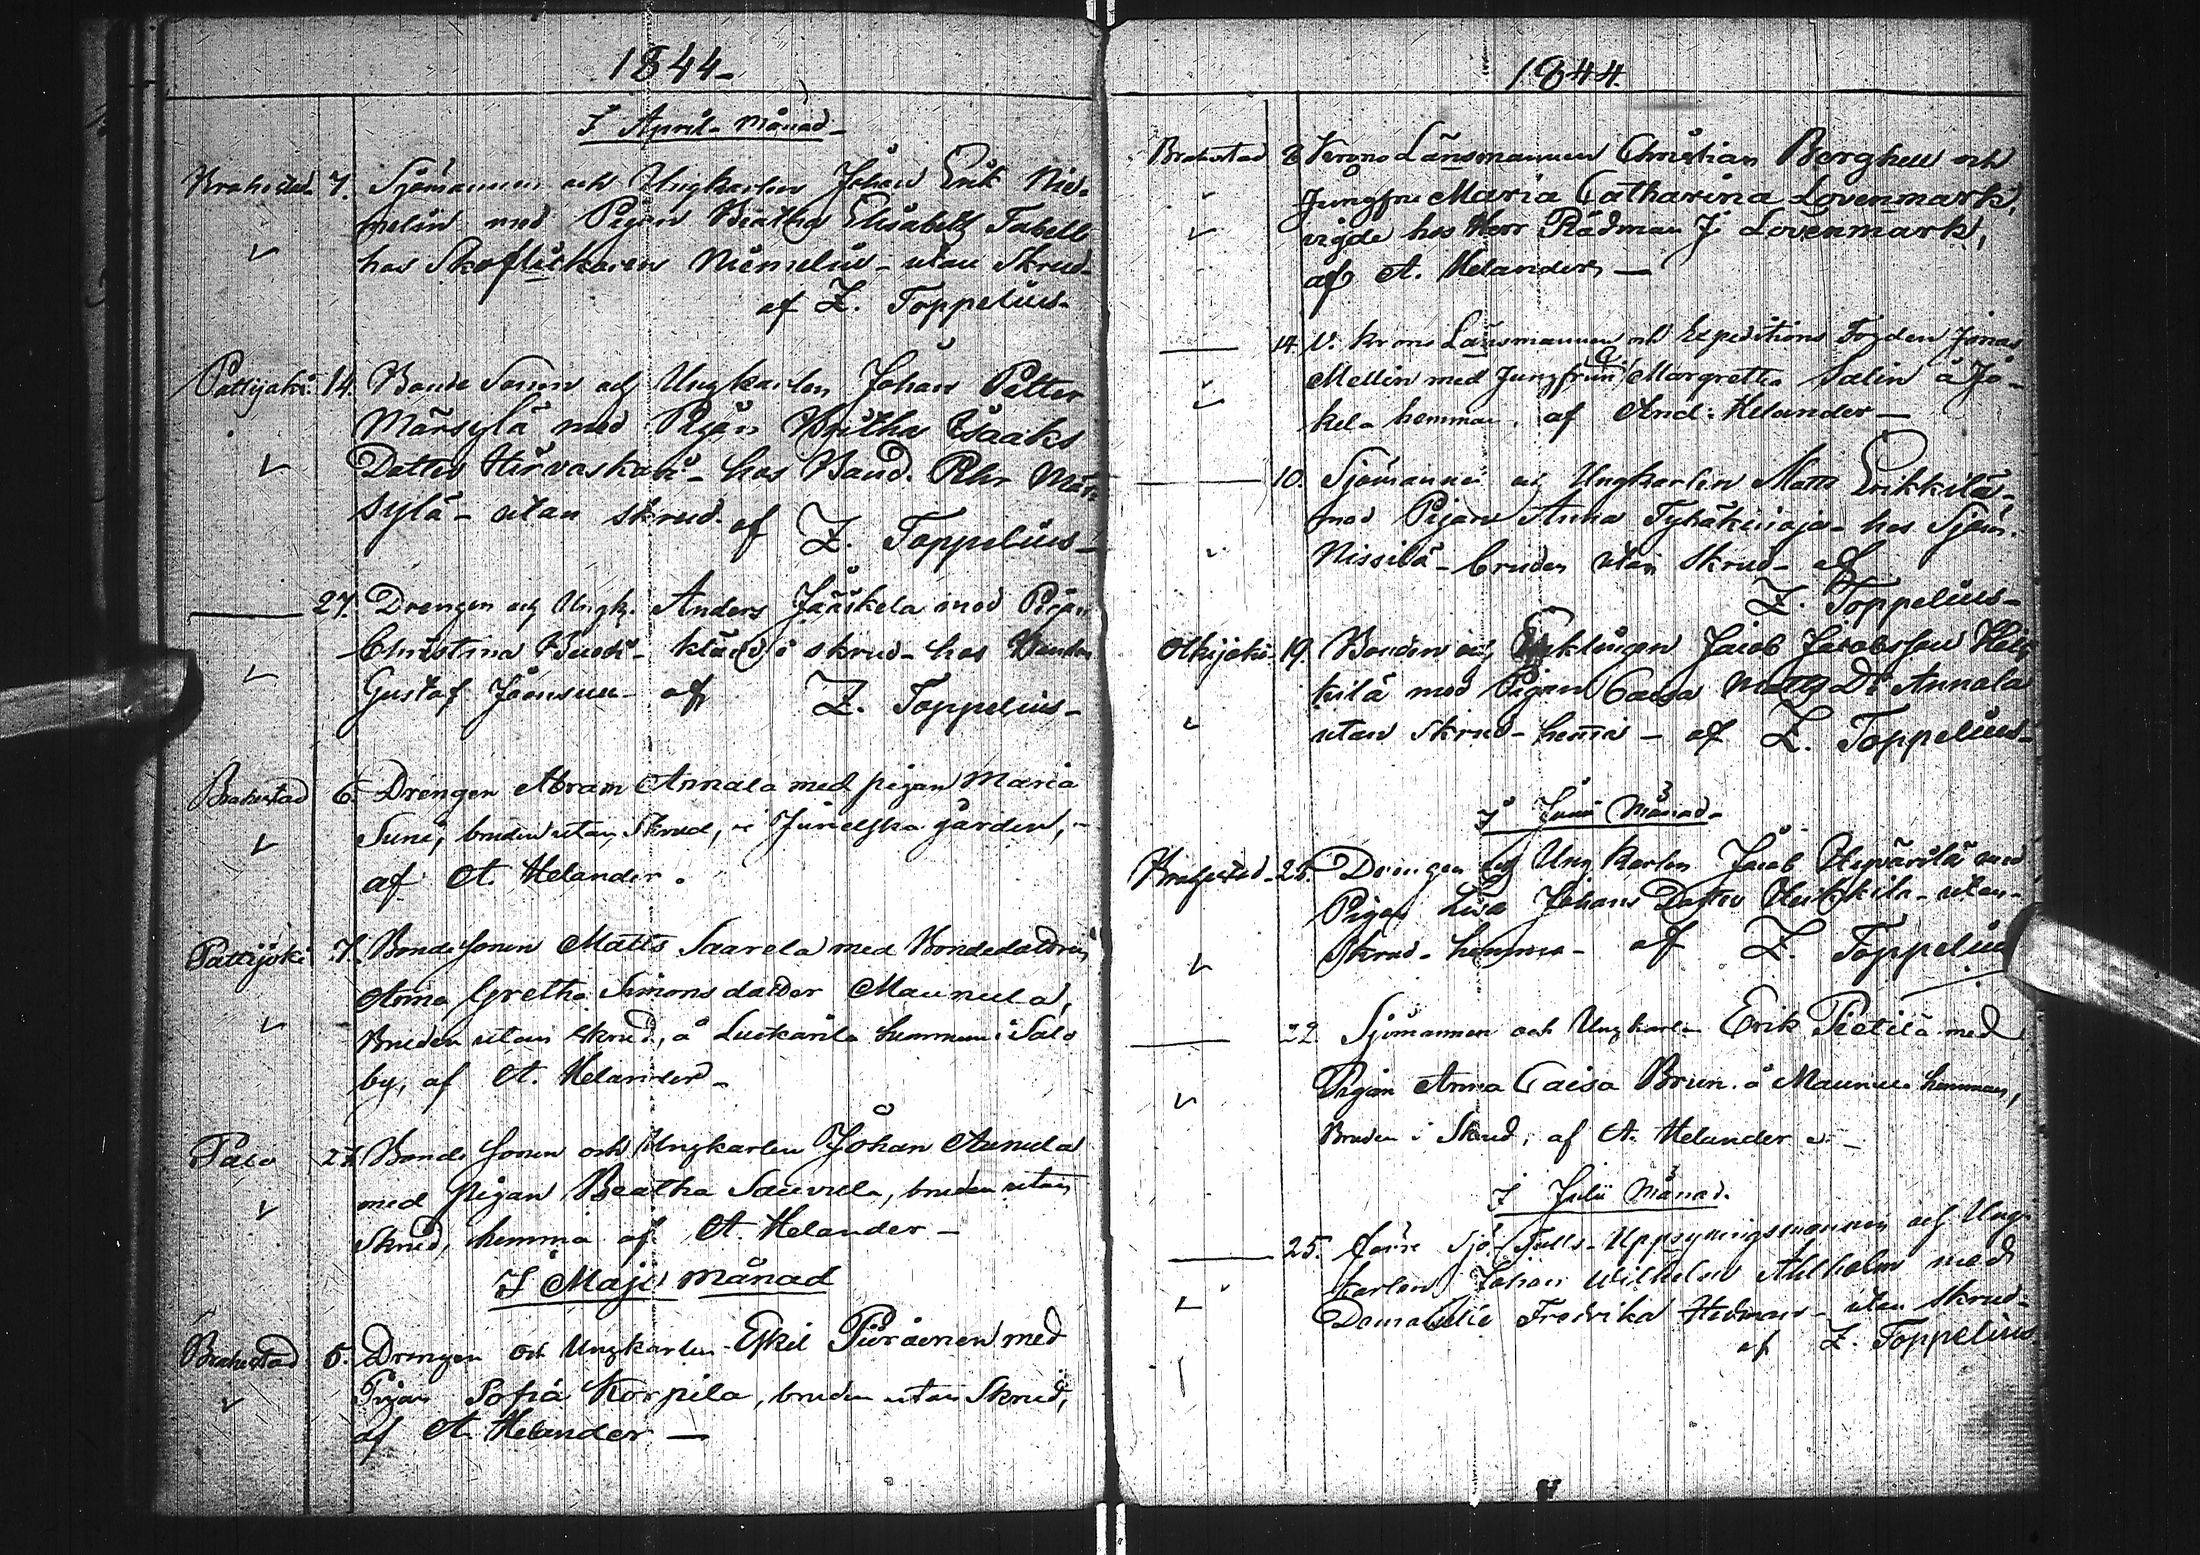 1844
I April månad
Brahestad 7. Sjömannen och Ungkarlen Johan Erik Nie-
melin med Pigan Beatha Elisabeth Tabell
hos Skoflickaren Niemelin - utan Skrud
af Z. Toppelius
Pattijoki 14. Bonde Sonen och Ungkarlen Johan Petter
Märsylä med Pigan Britha Isaaks
Dotter Hirvaskari - hos Bond. Märs
sylä - utan skrud af Z. Toppelius
27. Drengen och Ungk. Anders Jääskelä med Pigan
Christina - klädd i skrud - hos Bonden
Gustaf af Z. Toppelius
Brahestad 6. Drengen Abram Annala med pigan Maria
Suni, bruden utan Skrud, i gården,
af A. Helander.
Pattijoki 7. Bonde Sonen Matts Saarela med Bondedottren
Anna Gretha Simonsdotter Maunula,
Bruden utan skrud, å hemman i Salo
by, af A. Helander
Salo 27. Bonde Sonen och Ungkarlen Johan Annula
med pigan Beatha bruden utan
Skrud, hemma af A. Helander
I Maji månad
Brahestad 5. Drengen och Ungkarlen Eskil med
Pigan Sofia Korpila, bruden utan Skrud,
af A. Helander
1844
Brahestad 8 Krono Länsmannen Christian Borghell och
Jungfru Maria Catharina Lövenmark,
vigde hos Herr Rådman J. Lövenmark,
af A. Helander
14. V. Krono Länsmannen och Expeditions Fogden Jonas
Mellin med Jungfrun Margretha Salin å Jo-
kela hemman, af And. Helander
10. Sjömannen och Ungkarlen Matts Erikkilä
med Pigan Anna - hos Sjöm.
Nissilä - bruden utan skrud - af
Z. Toppelius
Olkijoki 19. Bonden och Enklingen Jacob Jacobsson Heik
kilä med Pigan Caisa Matts Dr Annala
utan skrud - hema - af Z. Toppelius
I Juni Månad
Brahestad 25. Drengen och Ungkarlen Jacob med
Pigan Lisa Johans Dotter Heikkilä - utan
Skrud - hemma - af Z. Toppelius
22. Sjömannen och Ungkarlen Erik Pietilä med
Pigan Anna Caisa Brun å Maunu hemman,
Bruden i Skrud, af A. Helander
I Julii Månad.
25. Sjö Tulls-Uppsyningsmannen och Ung-
karlen Johan Wilhelm Ahlholm med
Fredrika Hedman - utan skrud
af Z. Toppelius